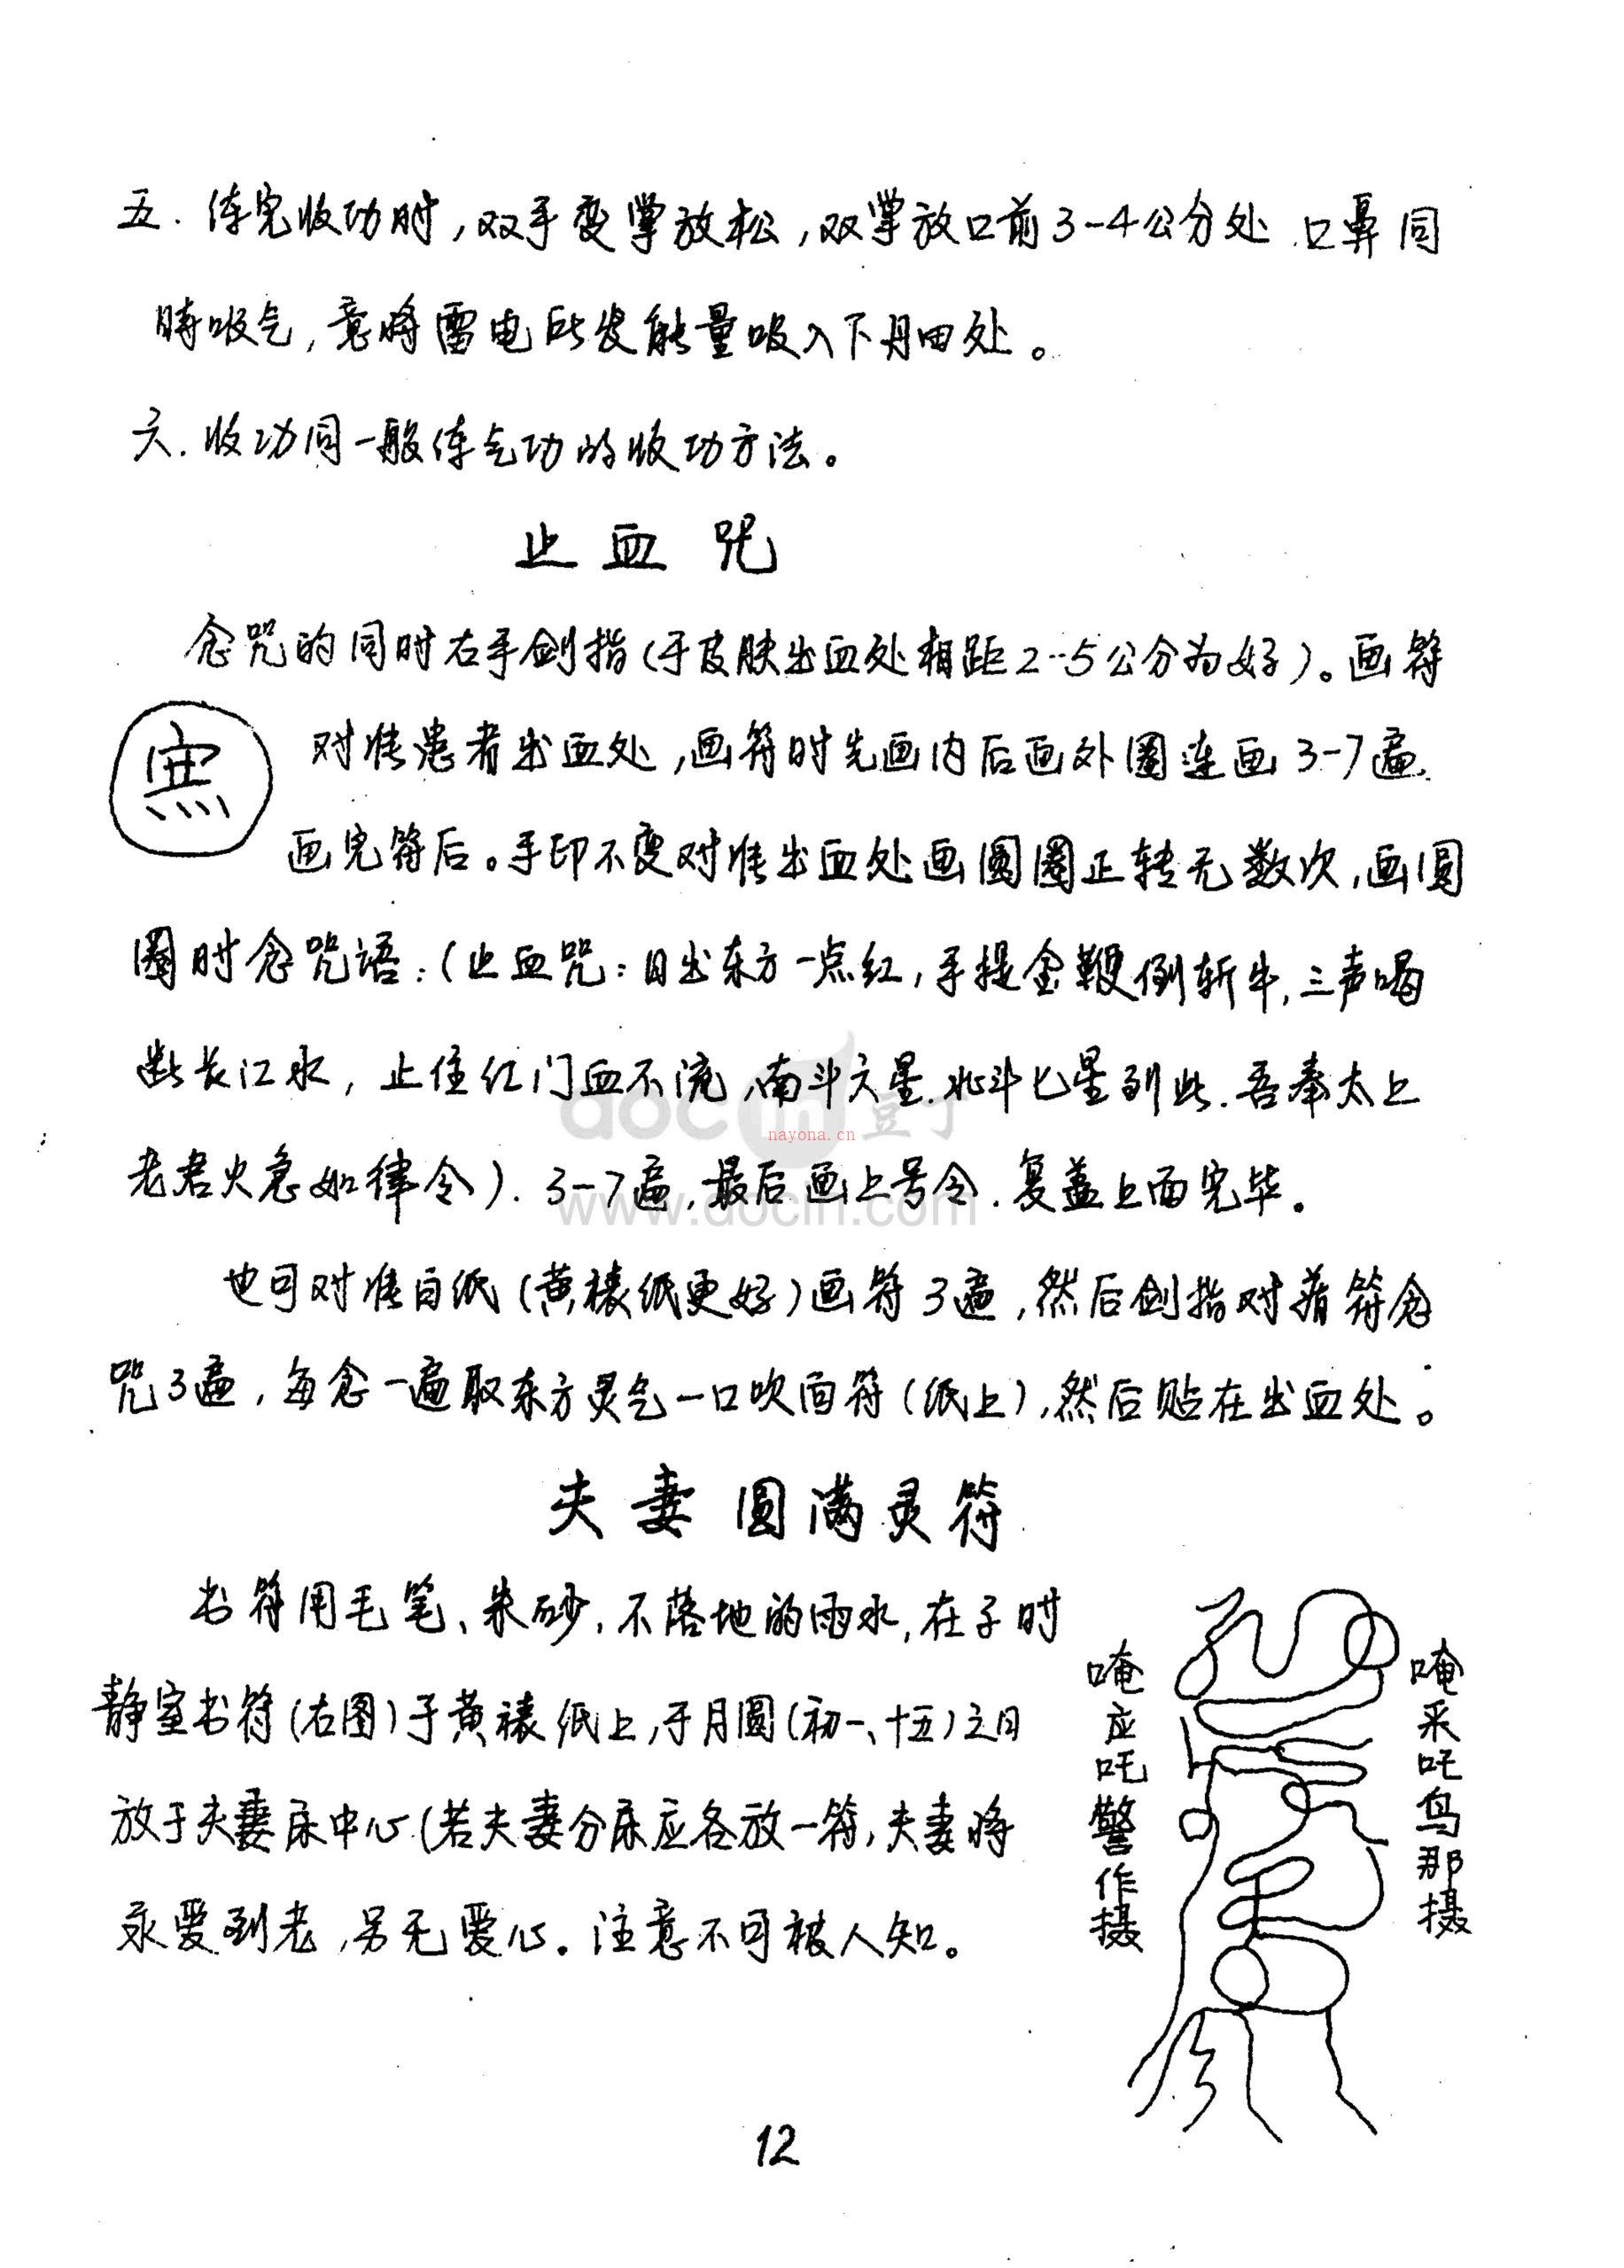 五.练完收功时,双手变掌放松,双掌放口前3-4公分处.口鼻同
时吸气,意将雷电所发能量吸入下丹田处。
六.收功同一般练气功的收功方法。
止血咒
念咒的同时右手剑指(于皮肤出血处相距2--5公分为好)。画符
对准患者出血处,画符时先画内后画外圈连画3-7遍.
画完符后。手印不变对准出血处画圆圈正转无数次,画圆
圈时念咒语:(止血咒:日出东方一点红,手提金鞭倒斩牛,三声喝
断长江水,止住红门血不流,南斗六星.北斗七星到此.吾奉太上
老君火急如律令).3-7遍,最后画上号令.复盖上面完毕。
也可对准白纸(黄裱纸更好)画符3遍,然后剑指对着符念
咒3遍,每念一遍取东方灵气一口吹向符(纸上),然后贴在出血处。
夫妻圆满灵符
书符用毛笔、朱砂,不落地的雨水,在子时
静室书符(右图)于黄裱纸上,于月圆(初一、十五)之日
放于夫妻床中心(若夫妻分床应各放一符,夫妻将
永爱到老,另无爱心。注意不可被人知。
唵应吒警作摄
唵采吒鸟那摄
12
docin豆丁
nayona.cn
www.docin.com